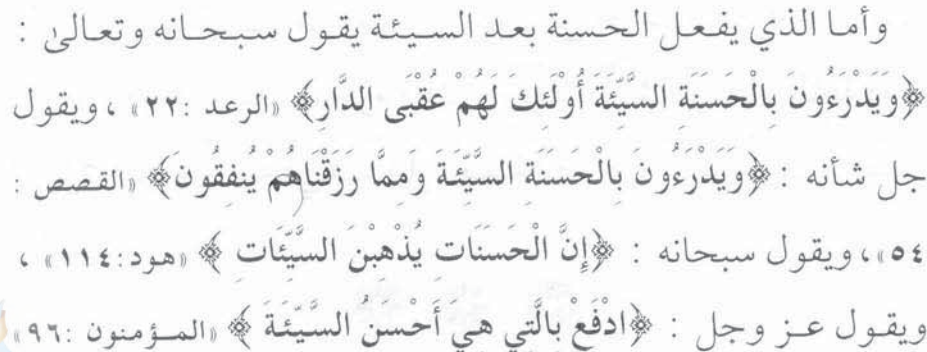 وأما الذي يفعل الحسنة بعد السيئة يقول سبحانه وتعالىٰ :
﴿وَيَدْرَءُونَ بِالْحَسَنَةِ السَّيِّئَةَ أُولَئِكَ لَهُمْ عُقْبَى الدَّارِ﴾ «الرعد :٢٢» ، ويقول
جل شأنه : ﴿وَيَدْرَءُونَ بِالْحَسَنَةِ السَّيِّئَةَ وَمِمَّا رَزَقْنَاهُمْ يُنفِقُونَ﴾ «القصص :
٥٤»، ويقول سبحانه : ﴿إِنَّ الْحَسَنَاتِ يُذْهِبْنَ السَّيِّئَاتِ ﴾ «هود:١١٤» ،
ويقول عز وجل : ﴿ادْفَعْ بِالَّتِي هِيَ أَحْسَنُ السَّيِّئَةَ ﴾ «المؤمنون :٩٦»